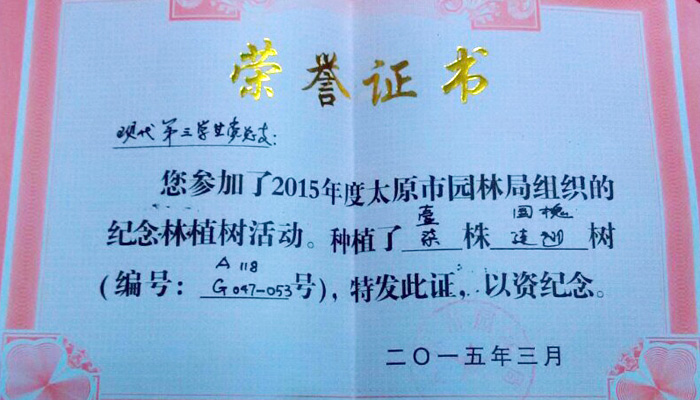 荣誉证书
现代第三学生党总支:
您参加了2015年度太原市园林局组织的
壹 国槐
纪念林植树活动。种植了柒株连翘树
A 118
(编号: G047-053号),特发此证,以资纪念。
二〇一五年三月